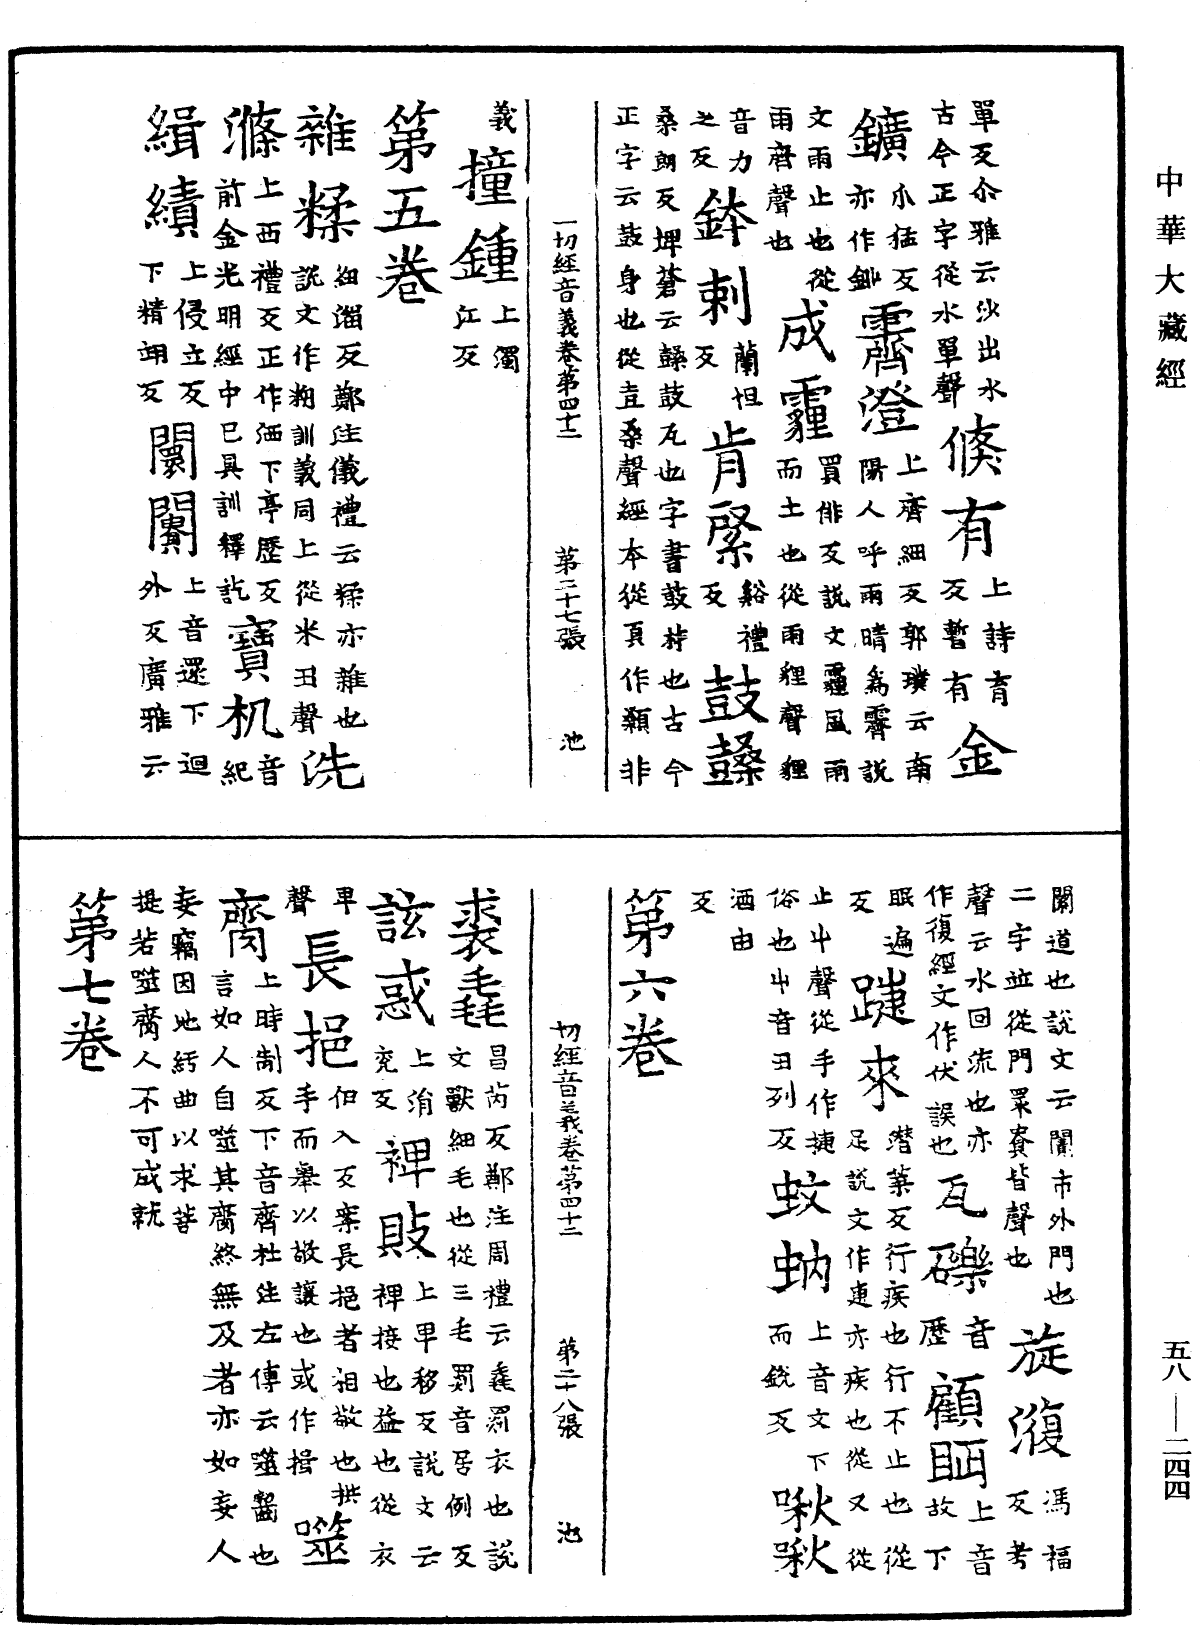 中華大藏經
單反尒雅云沙出水
古今正字從水單聲
倏有
上詩育
反暫有
金
鑛
㣺猛反
亦作鉚
霽澄
上齊細反郭璞云南
陽人呼雨晴爲霽說
文雨止也從
雨齊聲也
成霾
買俳反說文霾風雨
而土也從雨貍聲貍
音力
之反
鉢剌
蘭怛
反
肯綮
谿禮
反
鼓顙
桑朗反埤蒼云顙鼓瓦也字書鼓材也古今
正字云鼓身也從壴桑聲經本從頁作顙非
一切經音義卷第四十二 第二十七張 池
義
撞鍾
上濁
江反
第五卷
雜糅
紐溜反鄭注儀禮云糅亦雜也
說文作粈訓義同上從米丑聲
洗
滌
上西禮反正作洒下亭歷反
前金光明經中已具訓釋訖
寶机
音
紀
緝績
上侵立反
下精䎗反
闤闠
上音還下迴
外反廣雅云
闤道也說文云闠市外門也
二字竝從門睘㒹皆聲也
旋澓
馮福
反考
聲云水回流也亦
作復經文作伏誤也
瓦礫
音
歷
顧眄
上音
故下
眠遍
反
踕來
潛葉反行疾也行不止也從
足說文作疌亦疾也從又從
止屮聲從手作捷
俗也屮音丑列反
蚊蚋
上音文下
而銳反
啾啾
酒由
反
第六卷
切經音義卷第四十二 第二十八張 池
裘毳
昌芮反鄭注周禮云毳罽衣也說
文獸細毛也從三毛罽音居例反
詃惑
上涓
兖反
裨敗
上卑移反說文云
裨接也益也從衣
卑
聲
長挹
伊入反案長挹者相敬也拱
手而舉以敬讓也或作揖
噬
齎
上時制反下音齊杜注左傳云噬齧也
言如人自噬其齎終無及者亦如妄人
妄竊因地紆曲以求菩
提若噬齎人不可成就
第七卷
五八—二四四